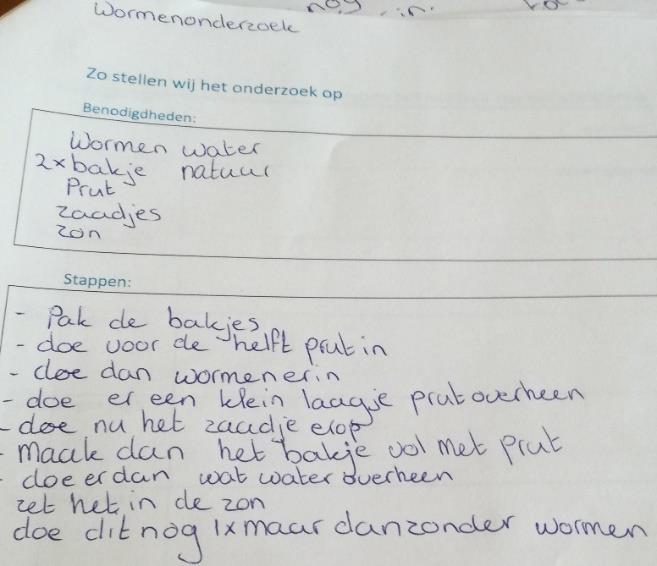 Wormenonderzoek
Zo stellen wij het onderzoek op
Benodigdheden:
Wormen water
2x bakje natuur
Prut
zaadjes
zon
Stappen:
- Pak de bakjes
- doe voor de helft prut in
- doe dan wormen erin
- doe er een klein laagje prut overheen
- doe nu het zaadje erop
- maak dan het bakje vol met prut
- doe er dan wat water overheen
zet het in de zon
doe dit nog 1x maar dan zonder wormen